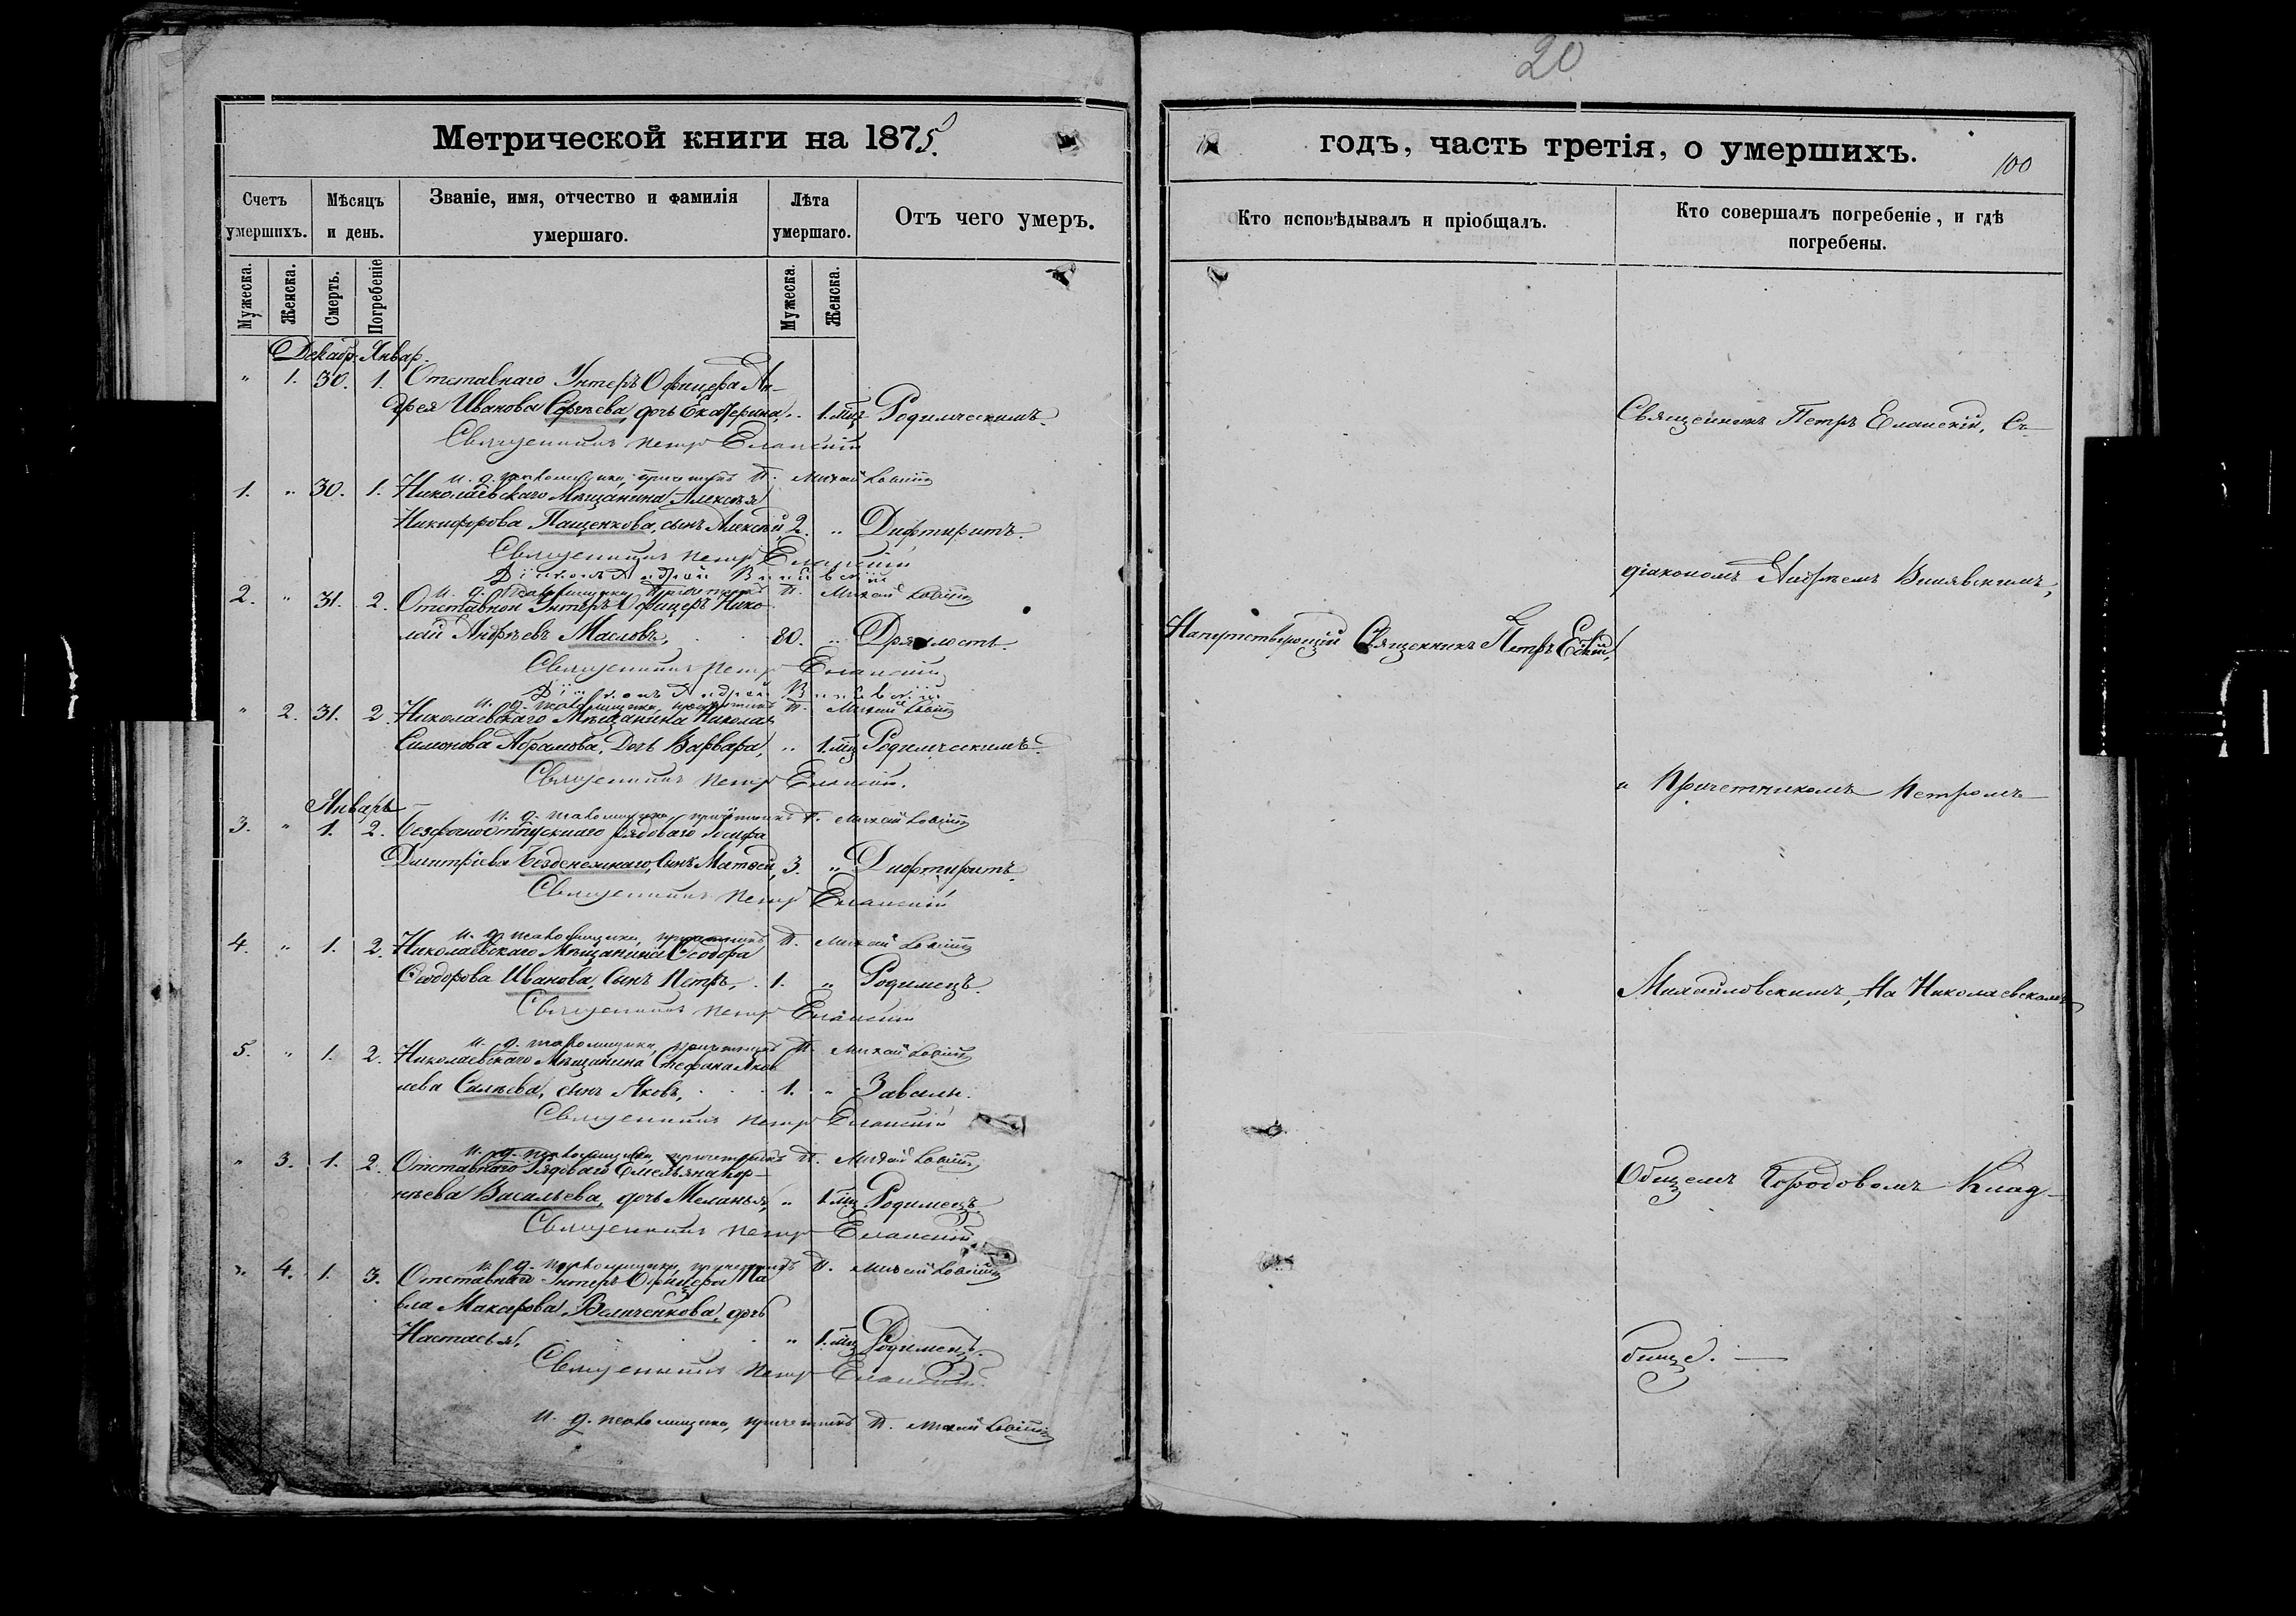 20
Метрической книги на 1875.
годъ, часть третія, о умершихъ.
100
Счетъ умершихъ.
Мѣсяцъ и день.
Званіе, имя, отчество и фамилія умершаго.
Лѣта умершаго.
Отъ чего умеръ.
Кто исповѣдывалъ и пріобщалъ.
Кто совершалъ погребеніе, и гдѣ погребены.
Мужеска.
Женска.
Смерть.
Погребеніе
Мужеска.
Женска.
Декабр. Январ.
" 1. 30. 1. Отставнаго Унтеръ Офицера Ан-
дрея Иванова Сергѣева, дочь Екатерина, " 1. мѣц Родимческимъ.
Священникъ Петръ Еланскій
и. д. псаломщика, причетникъ П. Михайловскій
1. " 30. 1. Николаевскаго Мѣщанина Алексѣя
Никифорова Пащенкова, сынъ Алексѣй, 2. " Дифтиритъ.
Священникъ Петръ Еланскій
Діаконъ Андрей Винявскій
и. д. псаломщика, причетникъ П. Михайловскій
2. " 31. 2. Отставной Унтеръ Офицеръ Нико-
лай Андреевъ Масловъ, 80. " Дряхлость.
Священникъ Петръ Еланскій
Діаконъ Андрей Винявскій
и. д. псаломщика, причетникъ П. Михайловскій
" 2. 31. 2. Николаевскаго Мѣщанина Николая
Симонова Абрамова, Дочь Варвара, " 1. мѣц Родимческимъ.
Священникъ Петръ Еланскій.
Январь
и. д. псаломщика, причетникъ П. Михайловскій
3. " 1. 2. Безсрочноотпускнаго рядоваго Іосифа
Дмитріева Безденежнаго, Сынъ Матвей, 3. " Дифтиритъ.
Священникъ Петръ Еланскій
и. д. псаломщика, причетникъ П. Михайловскій
4. " 1. 2. Николаевскаго Мѣщанина Ѳеодора
Ѳеодорова Иванова, Сынъ Петръ, 1. " Родимецъ.
Священникъ Петръ Еланскій
и. д. псаломщика, причетникъ П. Михайловскій
5. " 1. 2. Николаевскаго Мѣщанина Стефана Яков
лева сынъ Яковъ, 1. " Завалы.
Священникъ Петръ Еланскій
и. д. псаломщика, причетникъ П. Михайловскій
" 3. 1. 2. Отставнаго Рядоваго Емельяна Кор-
нѣева Васильева, дочь Меланья, " 1. мѣц Родимецъ.
Священникъ Петръ Еланскій
и. д. псаломщика, причетникъ П. Михайловскій
" 4. 1. 3. Отставнаго Унтеръ Офицера Па
вла Макарова Величенкова, дочь
Настасья, " 1. мѣц Родимецъ.
Священникъ Петръ Еланскій.
и. д. псаломщика, причетникъ П. Михайловскій
Напутствующій Священникъ Петръ
Священникъ Петръ Еланскій, Съ
діакономъ Андреемъ Винявскимъ,
и Причетникомъ Петромъ
Михайловскимъ, На Николаевскомъ
Общемъ Городовомъ Клад-
бище.